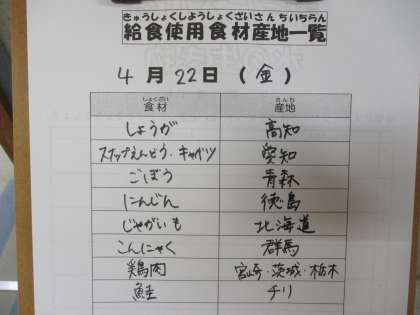 きゅうしょくしようしょくざいさんちいちらん
給食使用食材産地一覧
4月22日(金)
しょくざい さんち
食材 産地
しょうが 高知
スナップえんどう・キャベツ 愛知
ごぼう 青森
にんじん 徳島
じゃがいも 北海道
こんにゃく 群馬
鶏肉 宮崎・茨城・栃木
鮭 チリ